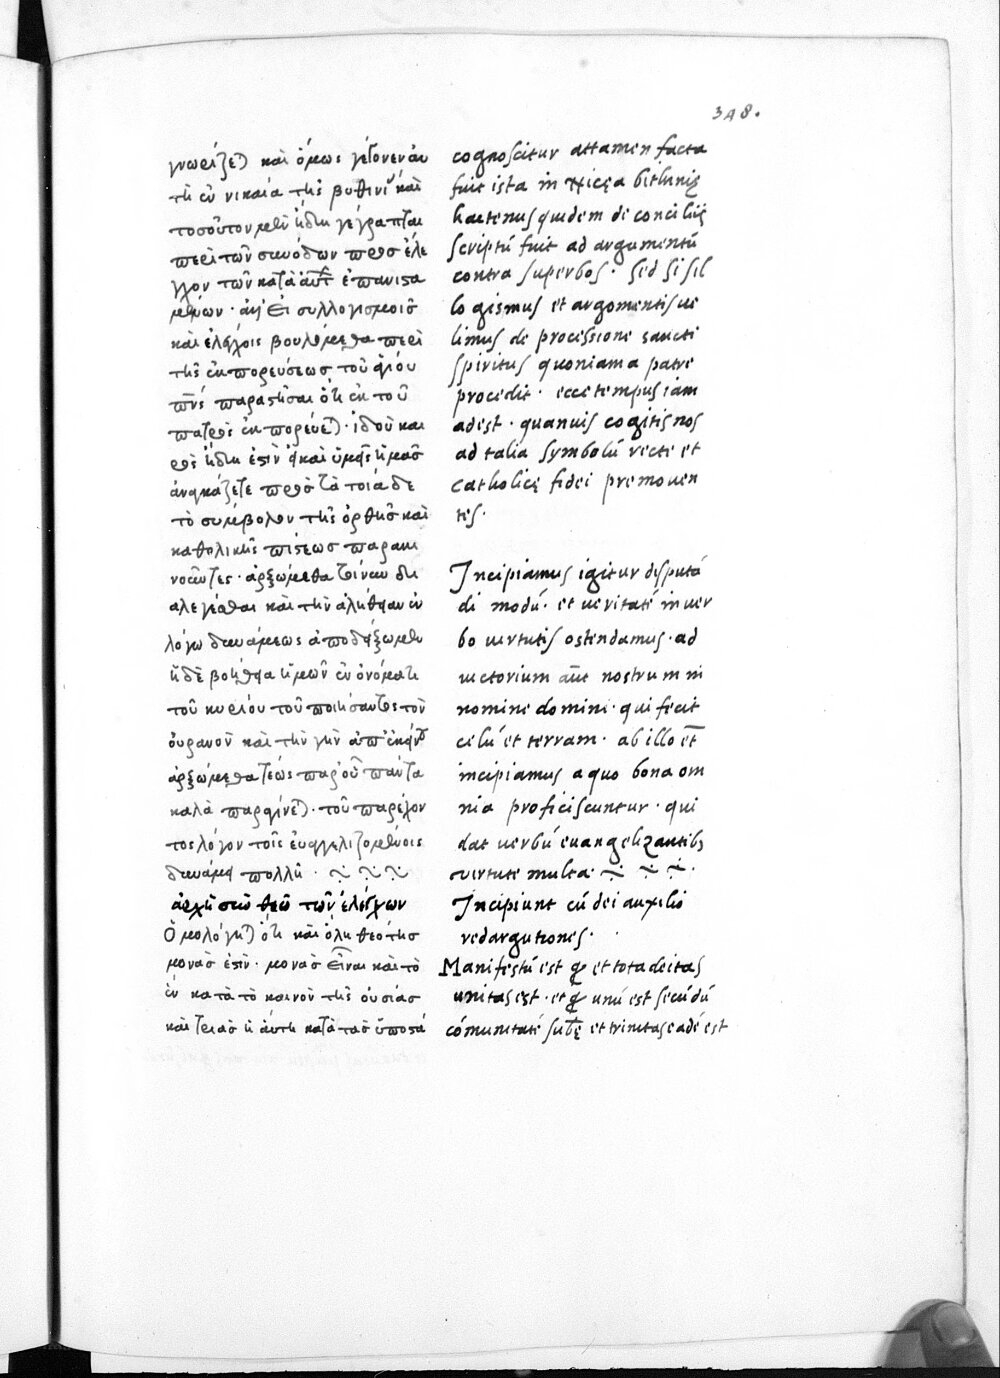 348.
γνωρίζε) καὶ ὅμως γέγονεν ἀν
τῇ ἐν νικαία τῆς βυθινῶν καὶ
τοσοῦτον μὲν ἤδη γέγραπται
περὶ τῶν συνόδων πρὸς ἔλε
γχον τῶν κατὰ ἐπανιστα
μένων· συλλογισμοῖς
καὶ ἐλέγχοις βουλόμεθα περὶ
τῆς ἐκπορεύσεως τοῦ ἁγίου
πνς παραστῆσαι ὅτι ἐκ τοῦ
πατρὸς ἐκπορεύε)· ἰδοὺ και
ρὸς ἤδη ἐστὶν εἰ καὶ ὑμεῖς ἡμᾶς
ἀναγκάζετε πρὸς τὰ τοιάδε
τὸ σύμβολον τῆς ὀρθῆς καὶ
καθολικῆς πίστεως παραι
νοῦντες· ἀρξώμεθα τοίνυν δι
αλεγέσθαι καὶ τὴν ἀλήθειαν ἐν
λόγω δυνάμεως ἀποδείξωμεν
ἡ δὲ βοήθεια ἡμῶν ἐν ὀνόματι
τοῦ κυρίου τοῦ ποιήσαντος τὸν
οὐρανὸν καὶ τὴν γῆν ἀπ' ἐκείνου
ἀρξώμεθα τέως παρ' οὗ πάντα
καλὰ παραγίνε)· τοῦ παρέχον
τος λόγον τοῖς εὐαγγελιζομένοις
δυνάμει πολλῇ·
ἀρχὴ σὺν θεῶ τῶν ἐλέγχων
Ὁμολόγη) ὅτι καὶ ὅλη θεότης
μονὰς ἐστὶν· μονὰς εἶναι καὶ τὸ
ἓν κατὰ τὸ κοινὸν τῆς οὐσίας
καὶ τριὰς ἡ αὐτὴ κατὰ τὰς ὑποστά
cognoscitur attamen facta
fuit ista in Nicęa bithinię
hactenus quidem de conciliis
scriptū fuit ad argumentū
contra superbos· sed si sil
logismus et argomentis ue
limus de processione sancti
spiritus quoniam a patre
procedit· ecce tempus iam
adest· quanuis cogitis nos
ad talia symbolū recte et
catholicę fidei premouen
tes·
Incipiamus igitur disputā
di modū· et ueritatē in uer
bo uirtutis ostendamus· ad
iuctorium aūt nostrum in
nomine domini· qui fecit
celū et terram· ab illo et
incipiamus a quo bona om
nia proficiscuntur· qui
dat uerbū euangelizantibs
uirtute multa·
Incipiunt cū dei auxilio
redargutiones·
Manifestū est q et tota deitas
unitas est· et q unū est secūdū
cōmunitatē subę et trinitas eadē est